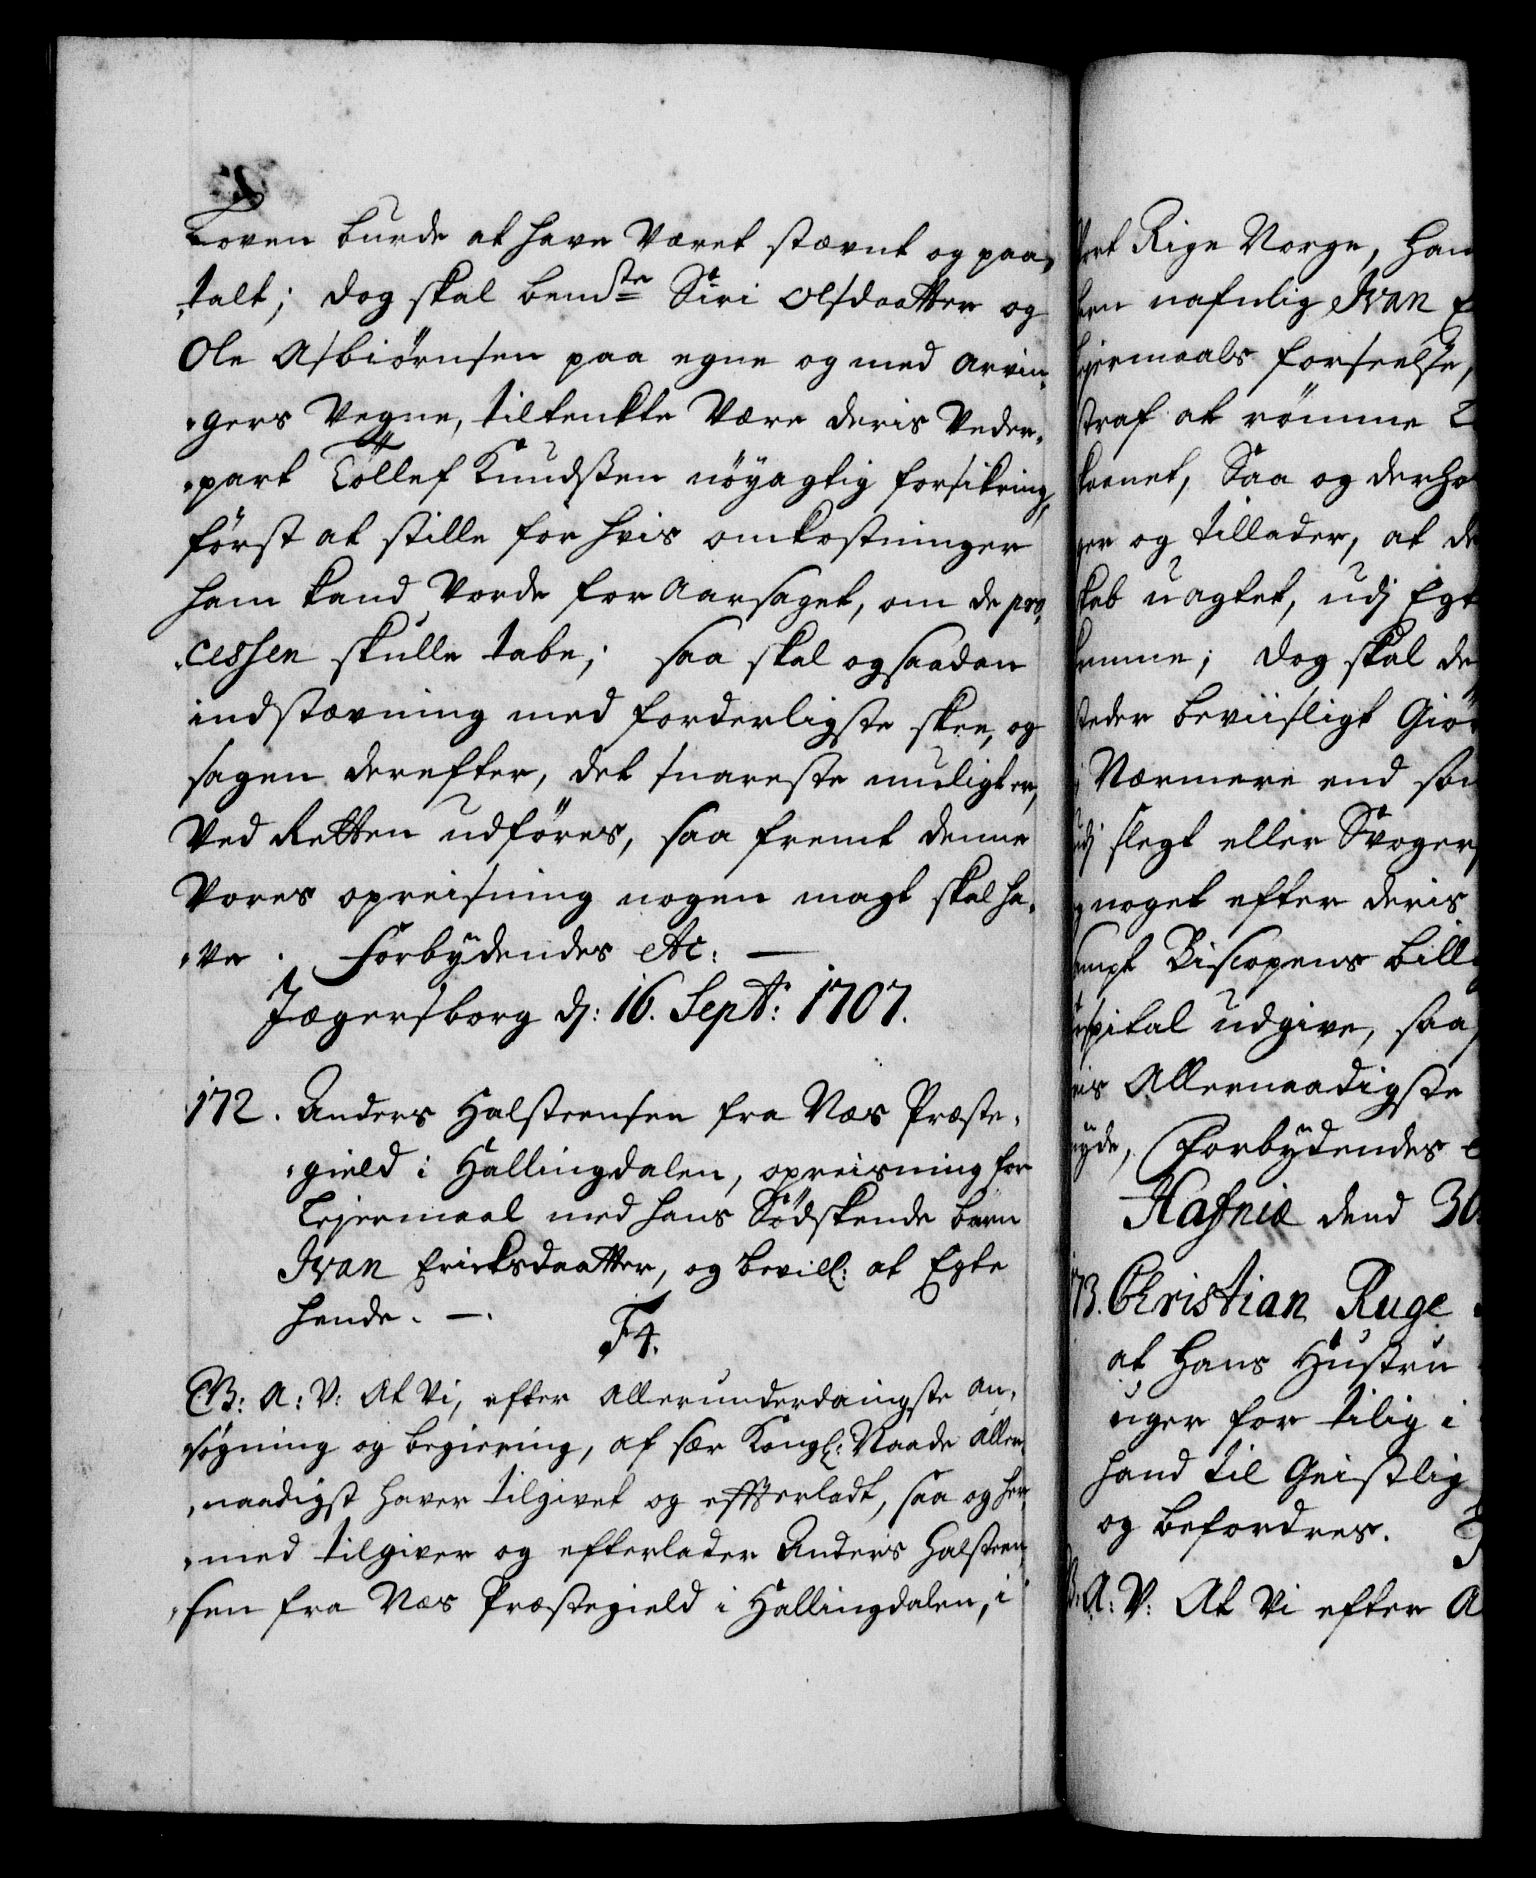 Loven burde at have været stævnt og paa„
„talt; dog skal bemte Siri Olsdaatter og
Ole Asbiørnsen paa egne og med arvin„
„gers Vegne, tiltenkte være deris Veder„
„part Tøllef Knudssen nøyagtig forsikring,
først at stille for hvis omkostninger
ham kand vorde for aarsaget, om de pro„
„cessen skulle tabe; saa skal og saadan
indstævning med forderligste skee, og
sagen derefter, det snareste muligt er,
ved Retten udføres, saa fremt denne
Vores opreisning nogen magt skal ha„
„ve. Forbydendes etc: —
Jægersborg d: 16. Sept: 1707.
172. Anders Halsteensen fra Næs Præste„
„gield i Hallingdalen, opreisning for
Lejermaal med hans Södskende barn
Ivan Ericksdaatter, og bevill: at Egte
hende. —.
F4.
C.B: A: V: At vi, efter allerunderdanigste an„
søgning og begiering, af sær Kongl: Naade aller„
„naadigst haver tilgivet og effterladt, saa og her„
„med tilgiver og efterlader Anders Halsteen„
„sen fra Næs Præstegield i Hallingdalen, i
Vort Rige Norge, han
nafnlig Ivan E
lejermaals forseelse,
straf at rømme
Saa og derho
og tillader, at de
skab uagtet, udj Egt
dog skal de
steder beviisligt Giör
Nærmere end som
udj slegt eller Svoger
noget efter deris
Biscopens bill
Hospital udgive, saa
Allernaadigste
nyde, Forbydendes e
Hafniæ dend 30
173. Christian Ruge
at Hans Hustru
unger for tilig i
hand til Geistlig
og befordres.
B: A: V: At Vi efter A